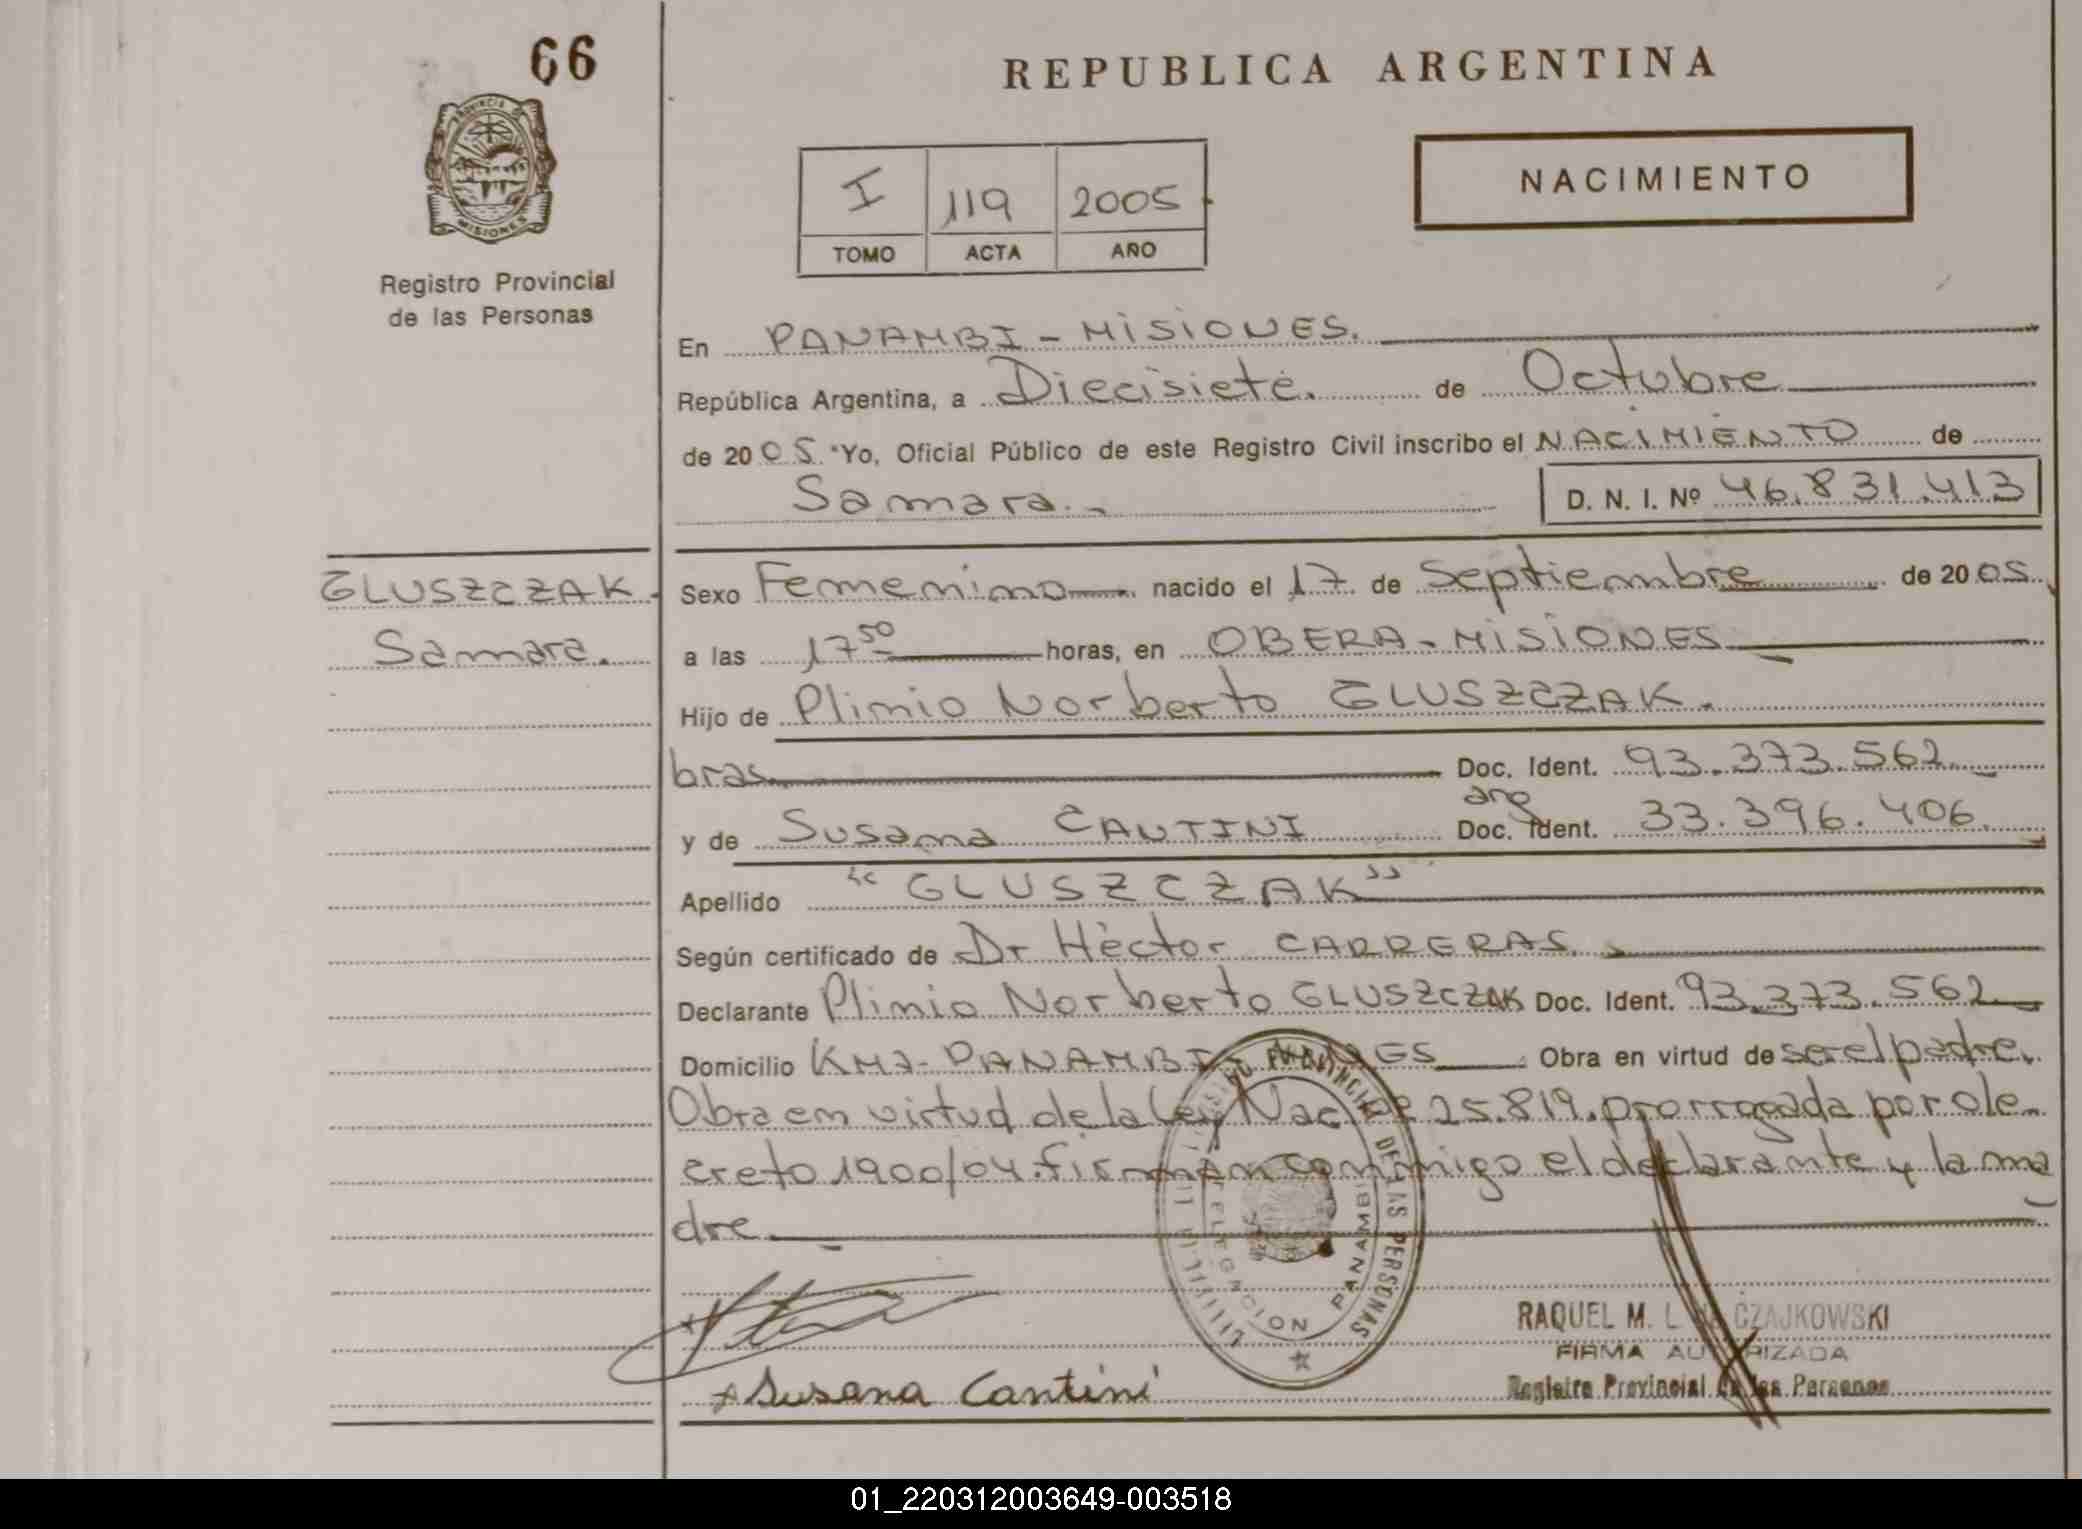 66
PROVINCIA DE
MISIONES
Registro Provincial
de las Personas
REPUBLICA ARGENTINA
I 119 2005
TOMO ACTA AÑO
NACIMIENTO
En PANAMBI - MISIONES.
República Argentina, a Diecisiete. de Octubre
de 2005. Yo, Oficial Público de este Registro Civil inscribo el NACIMIENTO de
Samara. D. N. I. Nº 46.831.413
GLUSZCZAK
Samara.
Sexo Femenino nacido el 17 de Septiembre de 2005.
a las 17 50 horas, en OBERA - MISIONES
Hijo de Plinio Norberto GLUSZCZAK.
bras. Doc. Ident. 93.373.562
arg
y de Susana CANTINI Doc. Ident. 33.396.406
Apellido "GLUSZCZAK"
Según certificado de Dr Héctor CARRERAS
Declarante Plinio Norberto GLUSZCZAK Doc. Ident. 93.373.562
Domicilio PANAMBI Obra en virtud de ser el padre.
Obra en virtud de la Ley Nac 25.819. prorrogada por de
creto 1900/04. firman conmigo el declarante y la ma
dre
REGISTRO PROVINCIAL DE LAS PERSONAS
DELEGACION PANAMBI
Susana Cantini
RAQUEL M. L CZAJKOWSKI
FIRMA AUTORIZADA
Registro Provincial de las Personas
01_220312003649-003518